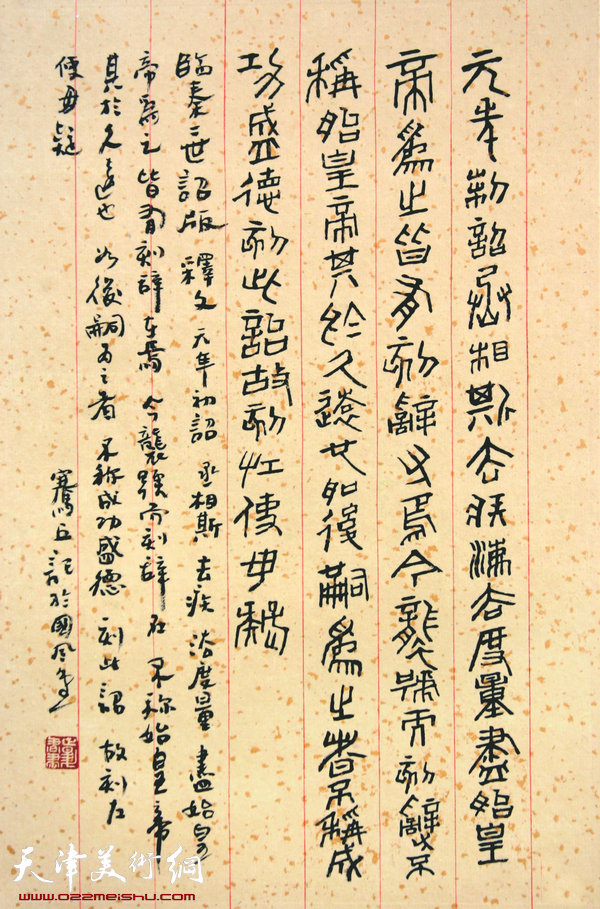 元年制詔丞相斯去疾灋度量盡始皇
帝爲之皆有刻辭焉今襲號而刻辭不
稱始皇帝其於久遠也如後嗣爲之者不稱成
功盛德刻此詔故刻左使毋疑
臨秦二世詔版 釋文 元年初詔 丞相斯 去疾 法度量 盡始皇
帝爲之 皆有刻辭在焉 今襲號而刻辞 在 不称始皇帝
其於久遠也 如後嗣为之者 不称成功盛德 刻此詔 故刻左
使毋疑
丘記於國風
天津美術網
www.022meishu.com